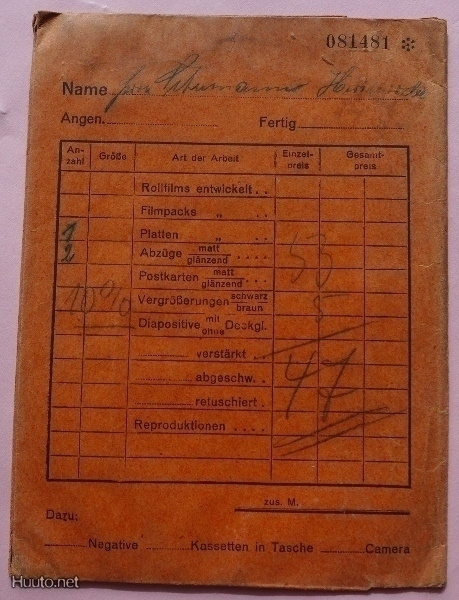 081481 *
Name Frau Schumann
Angen. Fertig
An- Größe Art der Arbeit Einzel- Gesamt-
zahl preis preis
Rollfilms entwickelt . .
Filmpacks „ . .
1 Platten „ . .
2 Abzüge matt glänzend . . . . 53
Postkarten matt glänzend . . .
10% Vergrößerungen schwarz braun 5
Diapositive mit ohne Deckgl.
verstärkt . .
abgeschw. . 47
retuschiert .
Reproduktionen . . . .
zus. M.
Dazu:
Negative Kassetten in Tasche Camera
Huuto.net